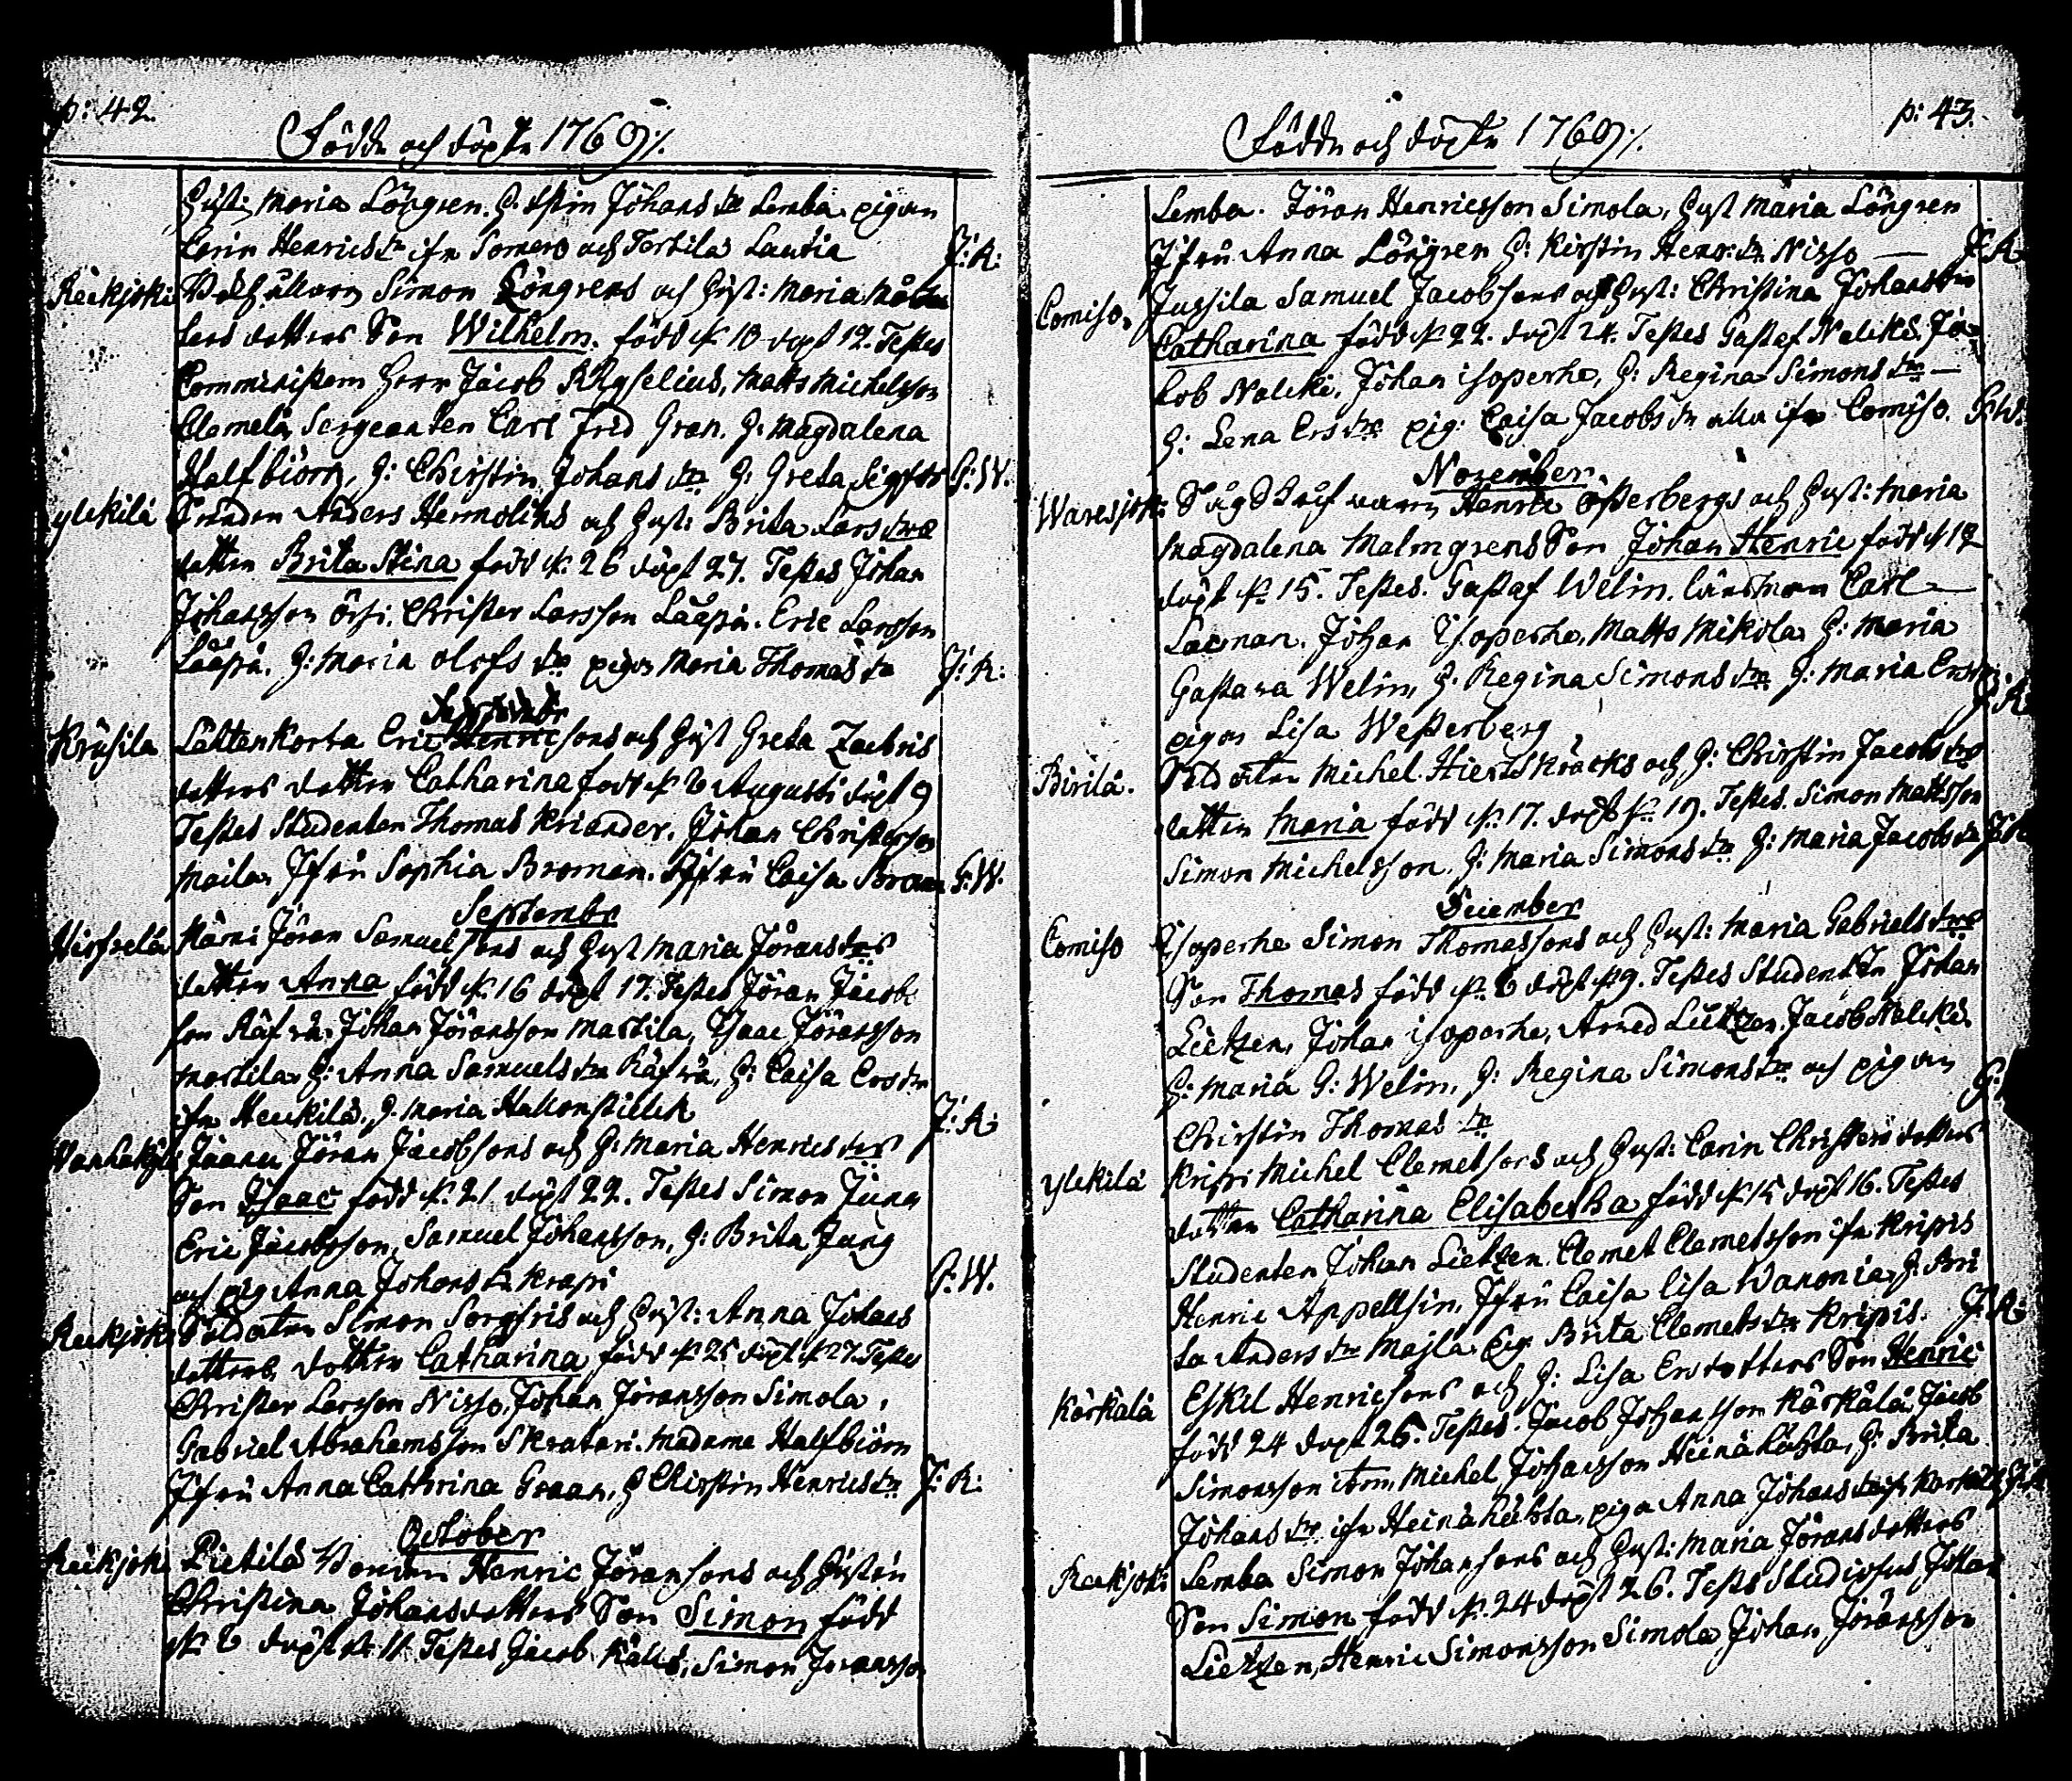 p: 42.
Födde och döpte 1769 ·/.
Hust: Maria Löngren. H. Stin Johans dr Lemba. pigan
Carin Henrics dr ifr Somero och Tortila Lautia J: R:
Reckjoki Simon Löngrens och Hust: Maria
lers dotters Son Wilhelm. född d. 10 döpt 12. Testes
Commministern Herr Jacob Rhyselius, Matts Michelsson
Clemelä, Sergeanten Carl Fred Gran. H. Magdalena
Halfbiörn, H: Christin Johans dr H: Greta Sigfrs G: W.
ylekilä Anders Hermolins och Hust: Brita Lars drs
dotter Brita Stina född d. 26 döpt 27. Testes Johan
Johansson Christer Larsson Laupa. Eric Larsson
Laupa. H: Maria Olofs dr pigan Maria Thomas dr J: R:
Krusila Lättenkorta Eric Henricsons och Hust Greta Zachris
dotters dotter Catharina född d. 6 Augusti döpt 9
Testes Studenten Thomas Kriander. Johan Christersson
Maila. Jfru Sophia Broman. Jfru Caisa Broman G: W.
Septembr
Hirsjelä Kärni Jöran Samuelsons och Hust Maria Jörans drs
dotter Anna född d. 16 döpt 17. Testes Jöran Jacobs
son Räfvä. Johan Jöransson Martila, Isaac Jöransson
Martila. H: Anna Samuels dr Räfvä, H: Caisa Ers dr
ifr Heickilä. H. Maria Hallonstielck J: R:
Wanhakylä Jöran Jacobsons och H: Maria Henrics drs
Son Isaac född d. 21. döpt 22. Testes Simon
Eric Jacobsson, Samuel Johansson, H: Brita Jung
och pig Anna Johans dr Krapi G: W.
Reckjoki Soldaten Simon Sorgfris och Hust: Anna Johans
dotters dotter Catharina född d. 25 döpt d. 27. Testes
Christer Larsson Nisso, Johan Jöransson Simola,
Gabriel Abrahamsson Skratari. Madame Halfbiörn
Jfru Anna Cathrina Graan, H Christin Henrics dr J: R:
October
Reckjoki Pietilä Bonden Henric Jöransons och Hustrun
Christina Johansdotters Son Simon född
d. 6 döpt d. 11. Testes Jacob Simon Jöransson
p: 43.
Födde och döpte 1769 ·/.
Lemba. Jöran Henricsson Simola, Hust Maria Löngren
Jfru Anna Löngren H: Kirstin Henr: dr Nisso — J: R.
Comiso. Jussila Samuel Jacobsons och Hust: Christina Johans drs
Catharina född d. 22. döpt 24. Testes Gustaf Nalcki. Ja-
cob Nalcki, Johan isoperhe, H: Regina Simons dr —
H: Lena Ers dr pig: Caisa Jacobs dr alla ifr Comiso. G: W.
November
Waresjoki Henric Österbergs och Hust: Maria
Magdalena Malmgrens Son Johan Henric född d. 12
döpt d. 15. Testes. Gustaf Welin. Länsman Carl
Lacman. Johan Isoperhe, Matts Mikola H: Maria
Gustava Welin, H. Regina Simons dr H: Maria Ers dr J: R:
pigan Lisa Westerberg
Pirilä. Soldaten Michel Hiertskräcks och H: Christin Jacobs drs
dotter Maria född d. 17. döpt d. 19. Testes. Simon Mattsson
Simon Michelsson, H: Maria Simons dr H: Maria Jacobs dr
December
Comiso Isoperhe Simon Thomassons och Hust: Maria Gabriels drs
Son Thomas född d. 6 döpt d. 9. Testes Studenten Johan
Lietzen, Johan isoperhe, Arved Lietzen. Jacob Nalcki.
H: Maria G: Welin, H: Regina Simons dr och pigan
Christin Thomas dr
ylekilä Kripsi Michel Clemetsons och Hust: Carin Christers dotters
dotter Catharina Elisabetha född d. 15 döpt 16. Testes
Studenten Johan Lietzen. Clemet Clemetsson ifr Kripis
Henric Appellsin, Jfru Caisa Lisa Wanonia, H: Bri
ta Anders dr Majla. Pig Brita Clemets dr Kripis. J: R:
Kärkälä Eskil Henricsons och H: Lisa Ersdotters Son Henric
född 24 döpt 26. Testes. Jacob Johansson Kärkälä, Jacob
Simonsson item, Michel Johansson Heinäluhta, H: Brita
Johans dr ifr Heinäluhta, piga Anna Johans dr ifr Kärkälä
Reckjoki Lemba Simon Johansons och Hust: Maria Jörans dotters
Son Simon född d. 24 döpt 26. Testes Studiosus Johan
Lietzen, Henric Simonsson Simola, Johan Jöransson